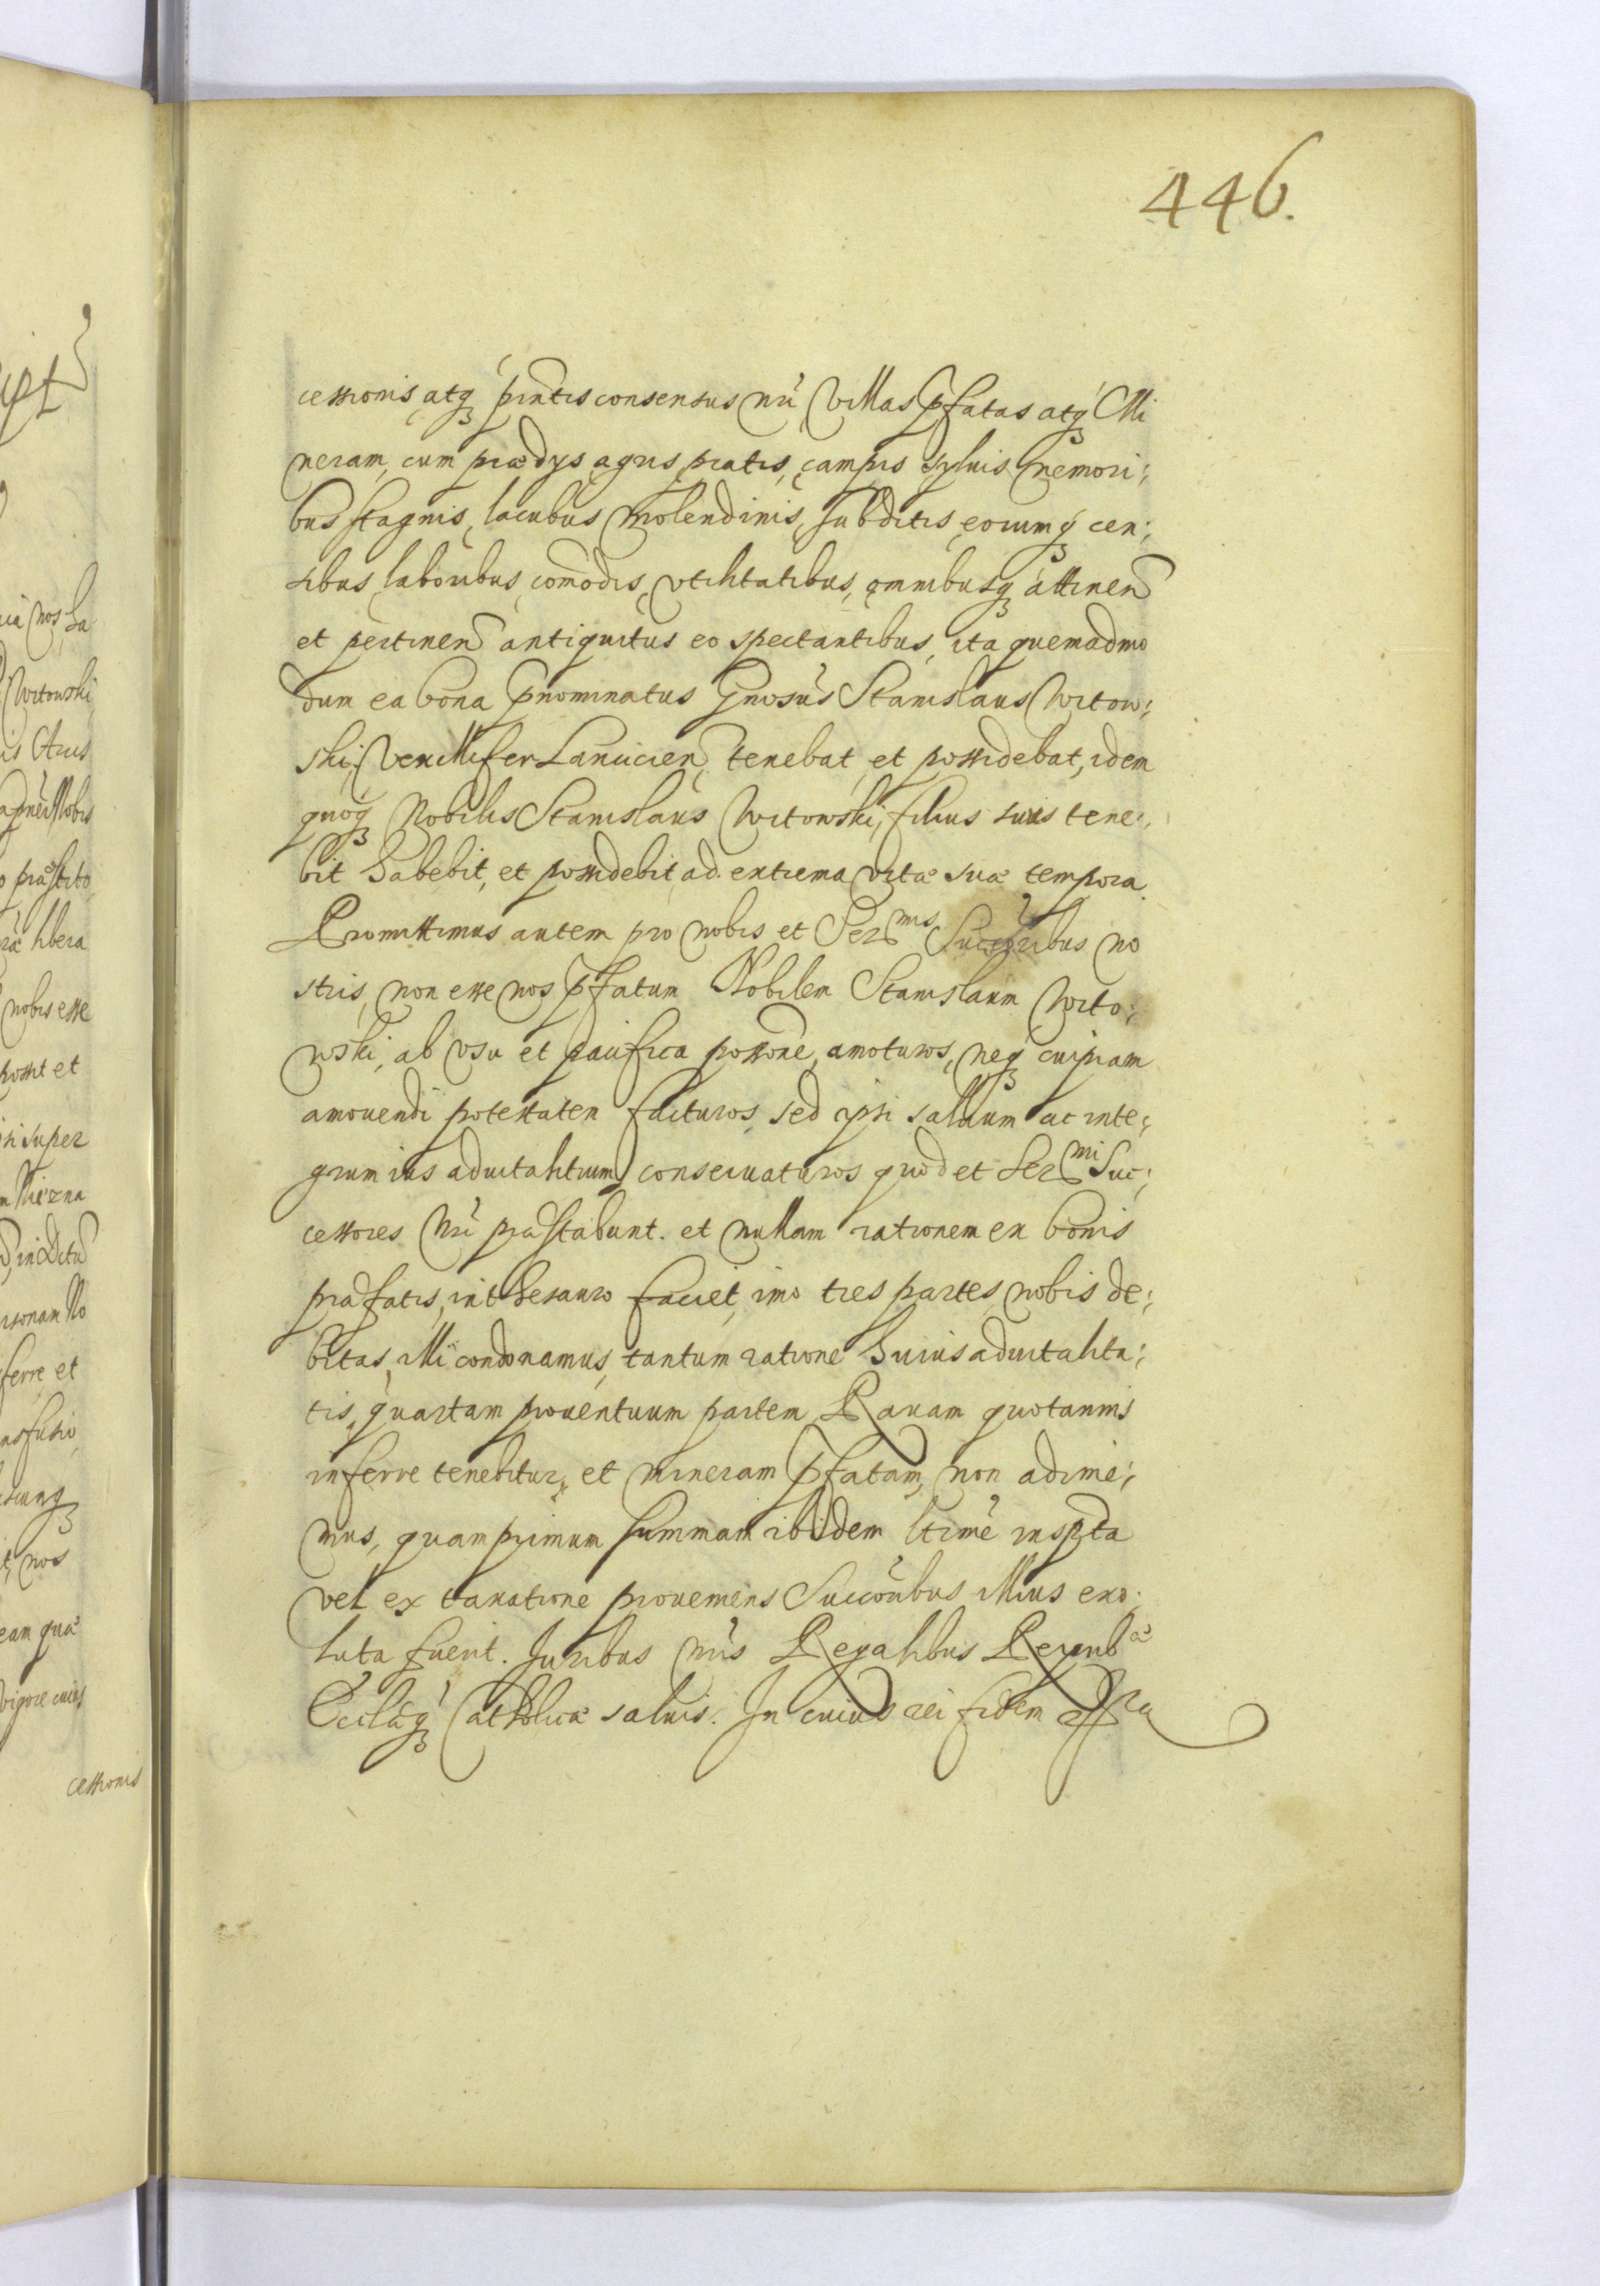 446.
cessionis atq; pñtis consensus nři Villas p̃fatas atq; Mi
neram, cum prædijs, agris, pratis, campis syluis, nemori:
bus stagnis, lacubus molendinis, subditis, eorumq; cen:
sibus, laboribus, com̃odis, vtilitatibus, omnibusq; attinen
et pertinen antiquitus eo spectantibus, ita quemadmo
dum ea bona p̃nominatus Gnosus Stanislaus Witow:
ski, Vexillifer Lancicien, tenebat, et possidebat, idem
quoq; Nobilis Stanislaus Witowski, filius suus tene:
bit habebit, et possidebit, ad extrema vitæ suæ tempora.
Promittimus autem pro nobis et Ser^mis Succoribus no
stris, non esse nos p̃fatum Nobilem Stanislaum Wito:
wski, ab vsu et pacifica possone, amoturos, neq; cuipiam
amouendi potestatem facturos, sed ipsi saluum ac inte:
grum ius aduitalitium conseruaturos quod et Ser^mi Suc:
cessores nři præstabunt. et nullam rationem ex bonis
præfatis, in thesauro faciet, imo tres partes nobis de:
bitas, illi condonamus, tantum ratione huius aduitalita:
tis, quartam prouentuum partem Rauam quotannis
inferre tenebitur, et mineram p̃fatam, non adime:
mus, quam primum summam ibidem ltime inspta
vel ex taxatione proueniens Succoribus illius exo:
luta fuerit. Juribus nřis Regalibus Reipub^æ
Ecclæq; Catholicæ saluis. In cuius rei fidem
cessionis